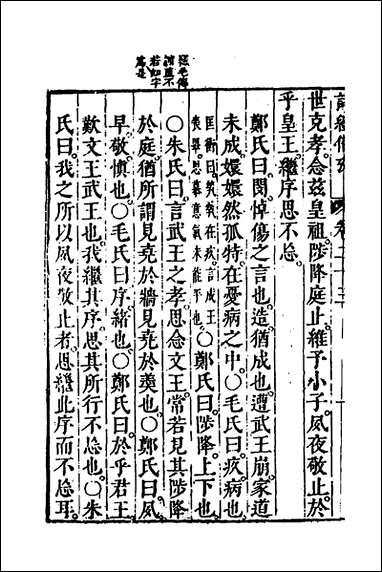 庭毛傳
訓直不
若如字
爲是
詩經傳疏 卷二十三
世克孝念兹皇祖陟降庭止維予小子夙夜敬止於
乎皇王繼序思不忘
鄭氏曰閔悼傷之言也造猶成也遭武王崩家道
未成嬛嬛然孤特在憂病之中○毛氏曰疚病也
匡衡曰煢煢在疚言成王
喪畢思慕意氣未能平也○鄭氏曰陟降上下也
○朱氏曰言武王之孝思念文王常若見其陟降
於庭猶所謂見堯於牆見堯於羹也○鄭氏曰夙
早敬慎也○毛氏曰序緒也○鄭氏曰於乎君王
歎文王武王也我繼其序思其所行不忘也○朱
氏曰我之所以夙夜敬止者思繼此序而不忘耳